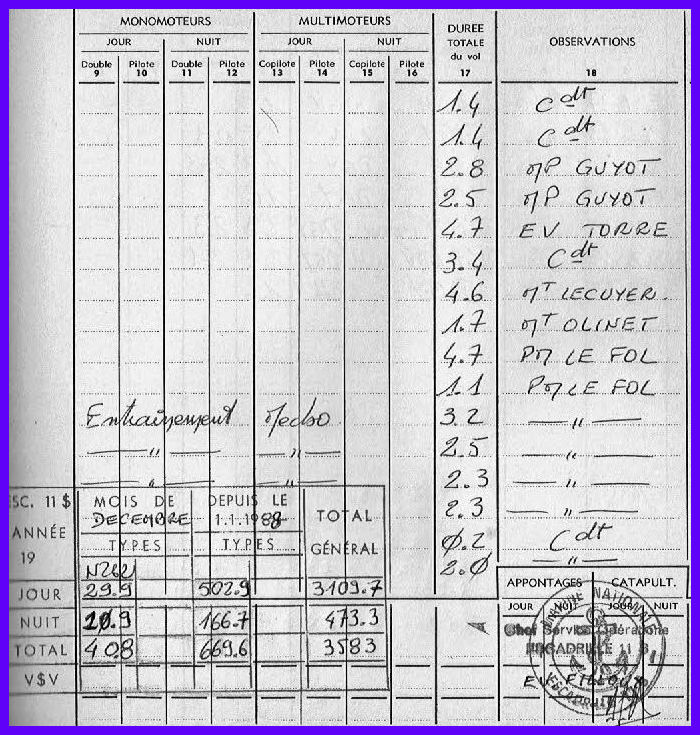 MONOMOTEURS MULTIMOTEURS
JOUR NUIT JOUR NUIT
DURÉE TOTALE du vol
OBSERVATIONS
Double Pilote Double Pilote Copilote Pilote Copilote Pilote
9 10 11 12 13 14 15 16 17 18
1.4 Cdt
1.4 Cdt
2.8 MP GUYOT
2.5 MP GUYOT
4.7 EV TORRE
3.4 Cdt
4.6 MT LECUYER
1.7 MT OLINET
4.7 PM LE FOL
1.1 PM LE FOL
Entrainement 3.2 — " —
— " — — " — 2.5 — " —
— " — — " — 2.3 — " —
2.3 — " —
0.2 Cdt
2.0 — " —
ESC. 11 $
ANNÉE
19
MOIS DE
DECEMBRE
TYPES
DEPUIS LE
1.1.1988
TYPES
TOTAL
GÉNÉRAL
N262
JOUR 29.9 502.9 3109.7
NUIT 10.9 166.7 473.3
TOTAL 40.8 669.6 3583
V$V
APPONTAGES CATAPULT.
JOUR NUIT JOUR NUIT
Chef Service Opérations
ESCADRILLE 11 S